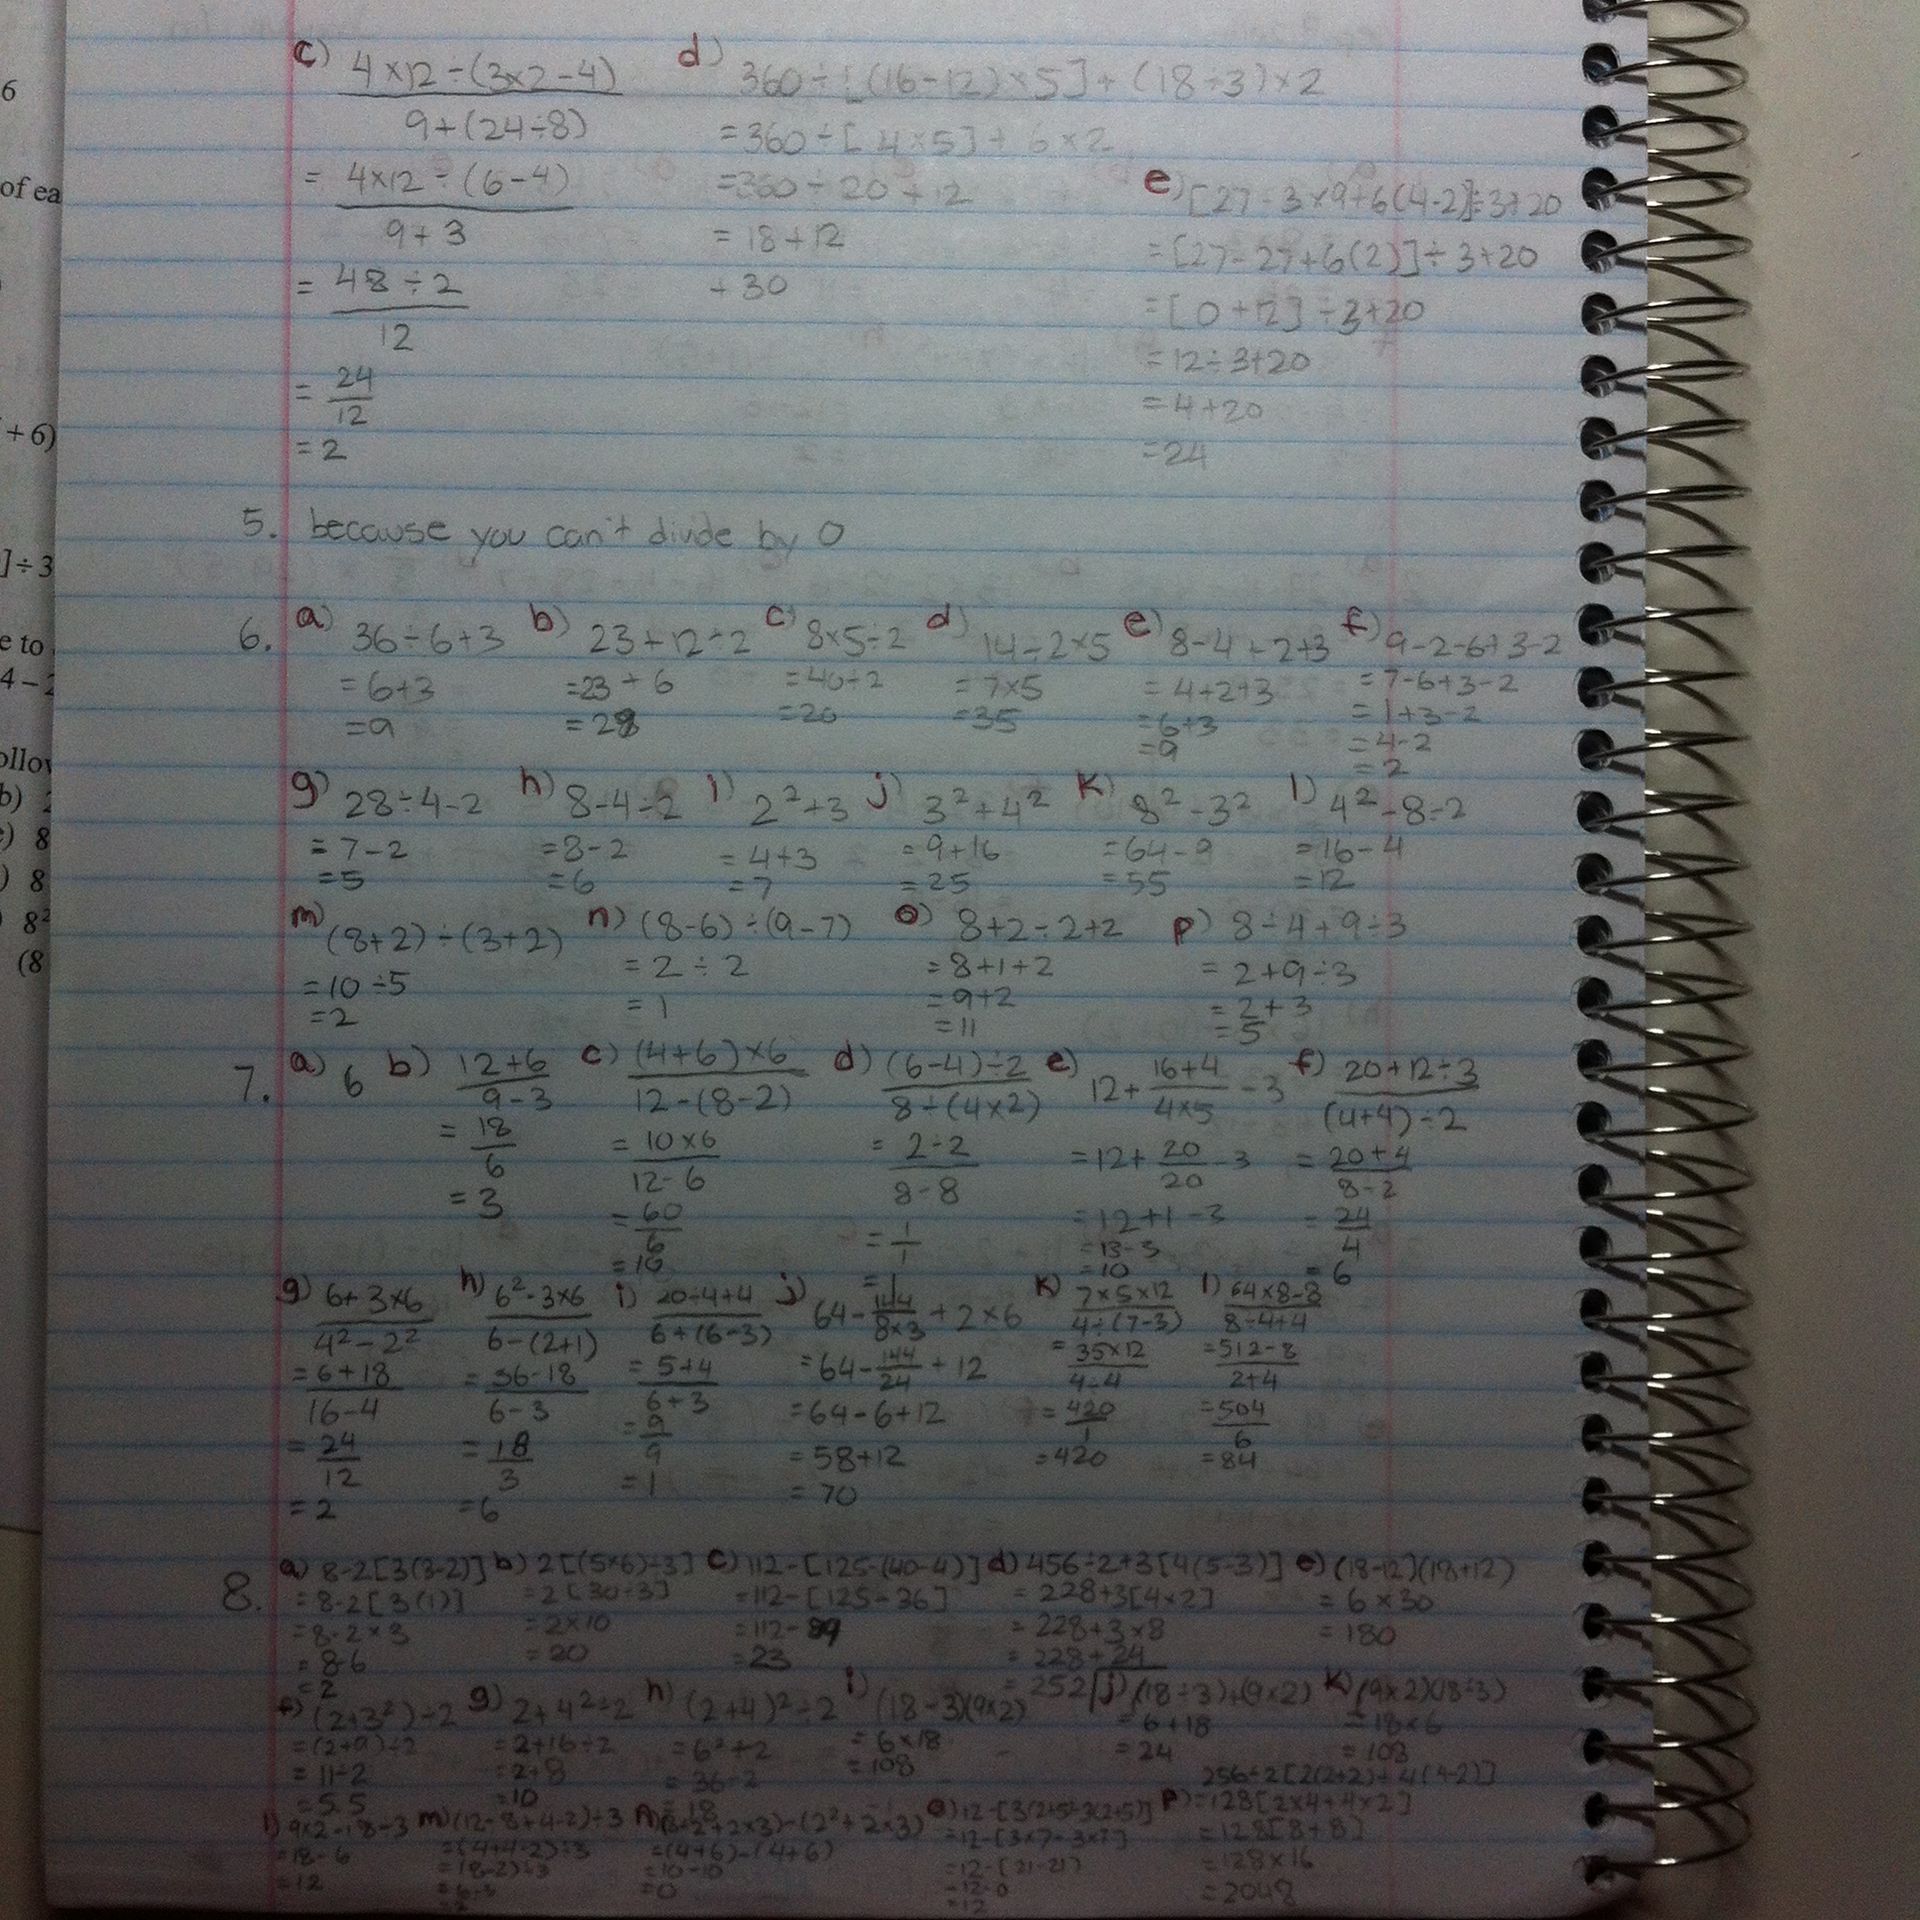 6
of ea
+ 6)
] ÷ 3
e to
4 – 2
ollow
b)
8
) 8
8²
(8
c) 4×12÷(3×2-4)
9+(24÷8)
= 4×12÷(6-4)
9+3
= 48÷2
12
= 24
12
= 2
d) 360÷[(16-12)×5]+(18÷3)×2
=360÷[4×5]+6×2
=360÷20+12
=18+12
+30
e) [27-3×9+6(4-2)]÷3+20
=[27-27+6(2)]÷3+20
=[0+12]÷3+20
=12÷3+20
=4+20
=24
5. because you can't divide by 0
6. a) 36÷6+3
=6+3
=9
b) 23+12÷2
=23+6
=28
c) 8×5÷2
=40÷2
=20
d) 14÷2×5
=7×5
=35
e) 8-4+2+3
=4+2+3
=6+3
=9
f) 9-2-6+3-2
=7-6+3-2
=1+3-2
=4-2
=2
g) 28÷4-2
=7-2
=5
h) 8-4÷2
=8-2
=6
i) 2²+3
=4+3
=7
j) 3²+4²
=9+16
=25
k) 8²-3²
=64-9
=55
l) 4²-8÷2
=16-4
=12
m) (8+2)÷(3+2)
=10÷5
=2
n) (8-6)÷(9-7)
=2÷2
=1
o) 8+2÷2+2
=8+1+2
=9+2
=11
p) 8÷4+9÷3
=2+9÷3
=2+3
=5
7. a) 6
b) 12+6
9-3
= 18
6
= 3
c) (4+6)×6
12-(8-2)
= 10×6
12-6
= 60
6
=10
d) (6-4)÷2
8÷(4×2)
= 2÷2
8÷8
= 1
1
=1
e) 12+ 16+4 -3
4×5
=12+ 20 -3
20
=12+1-3
=13-3
=10
f) 20+12÷3
(4+4)÷2
= 20+4
8÷2
= 24
4
=6
g) 6+3×6
4²-2²
= 6+18
16-4
= 24
12
=2
h) 6²-3×6
6-(2+1)
= 36-18
6-3
= 18
3
=6
i) 20÷4+4
6+(6-3)
= 5+4
6+3
= 9
9
=1
j) 64- 144 +2×6
8×3
=64- 144 +12
24
=64-6+12
=58+12
=70
k) 7×5×12
4÷(7-3)
= 35×12
4÷4
= 420
1
=420
l) 64×8-8
8÷4+4
= 512-8
2+4
= 504
6
=84
8. a) 8-2[3(3-2)]
=8-2[3(1)]
=8-2×3
=8-6
=2
b) 2[(5×6)÷3]
=2[30÷3]
=2×10
=20
c) 112-[125-(40-4)]
=112-[125-36]
=112-89
=23
d) 456÷2+3[4(5-3)]
=228+3[4×2]
=228+3×8
=228+24
=252
e) (18-12)(18+12)
=6×30
=180
f) (2+3²)÷2
=(2+9)÷2
=11÷2
=5.5
g) 2+4²÷2
=2+16÷2
=2+8
=10
h) (2+4)²÷2
=6²÷2
=36÷2
=18
i) (18÷3)(9×2)
=6×18
=108
j) (18÷3)+(9×2)
=6+18
=24
k) (9×2)(18÷3)
=18×6
=108
l) 9×2-18÷3
=18-6
=12
m) (12-8+4-2)÷3
=(4+4-2)÷3
=(8-2)÷3
n)
=(4+6)-(4+6)
=10-10
=0
o)
=12-[3×7-3×7]
=12-[21-21]
=12-0
=12
p) 256÷2[2(2+2)+4(4-2)]
=128[2×4+4×2]
=128[8+8]
=128×16
=2048